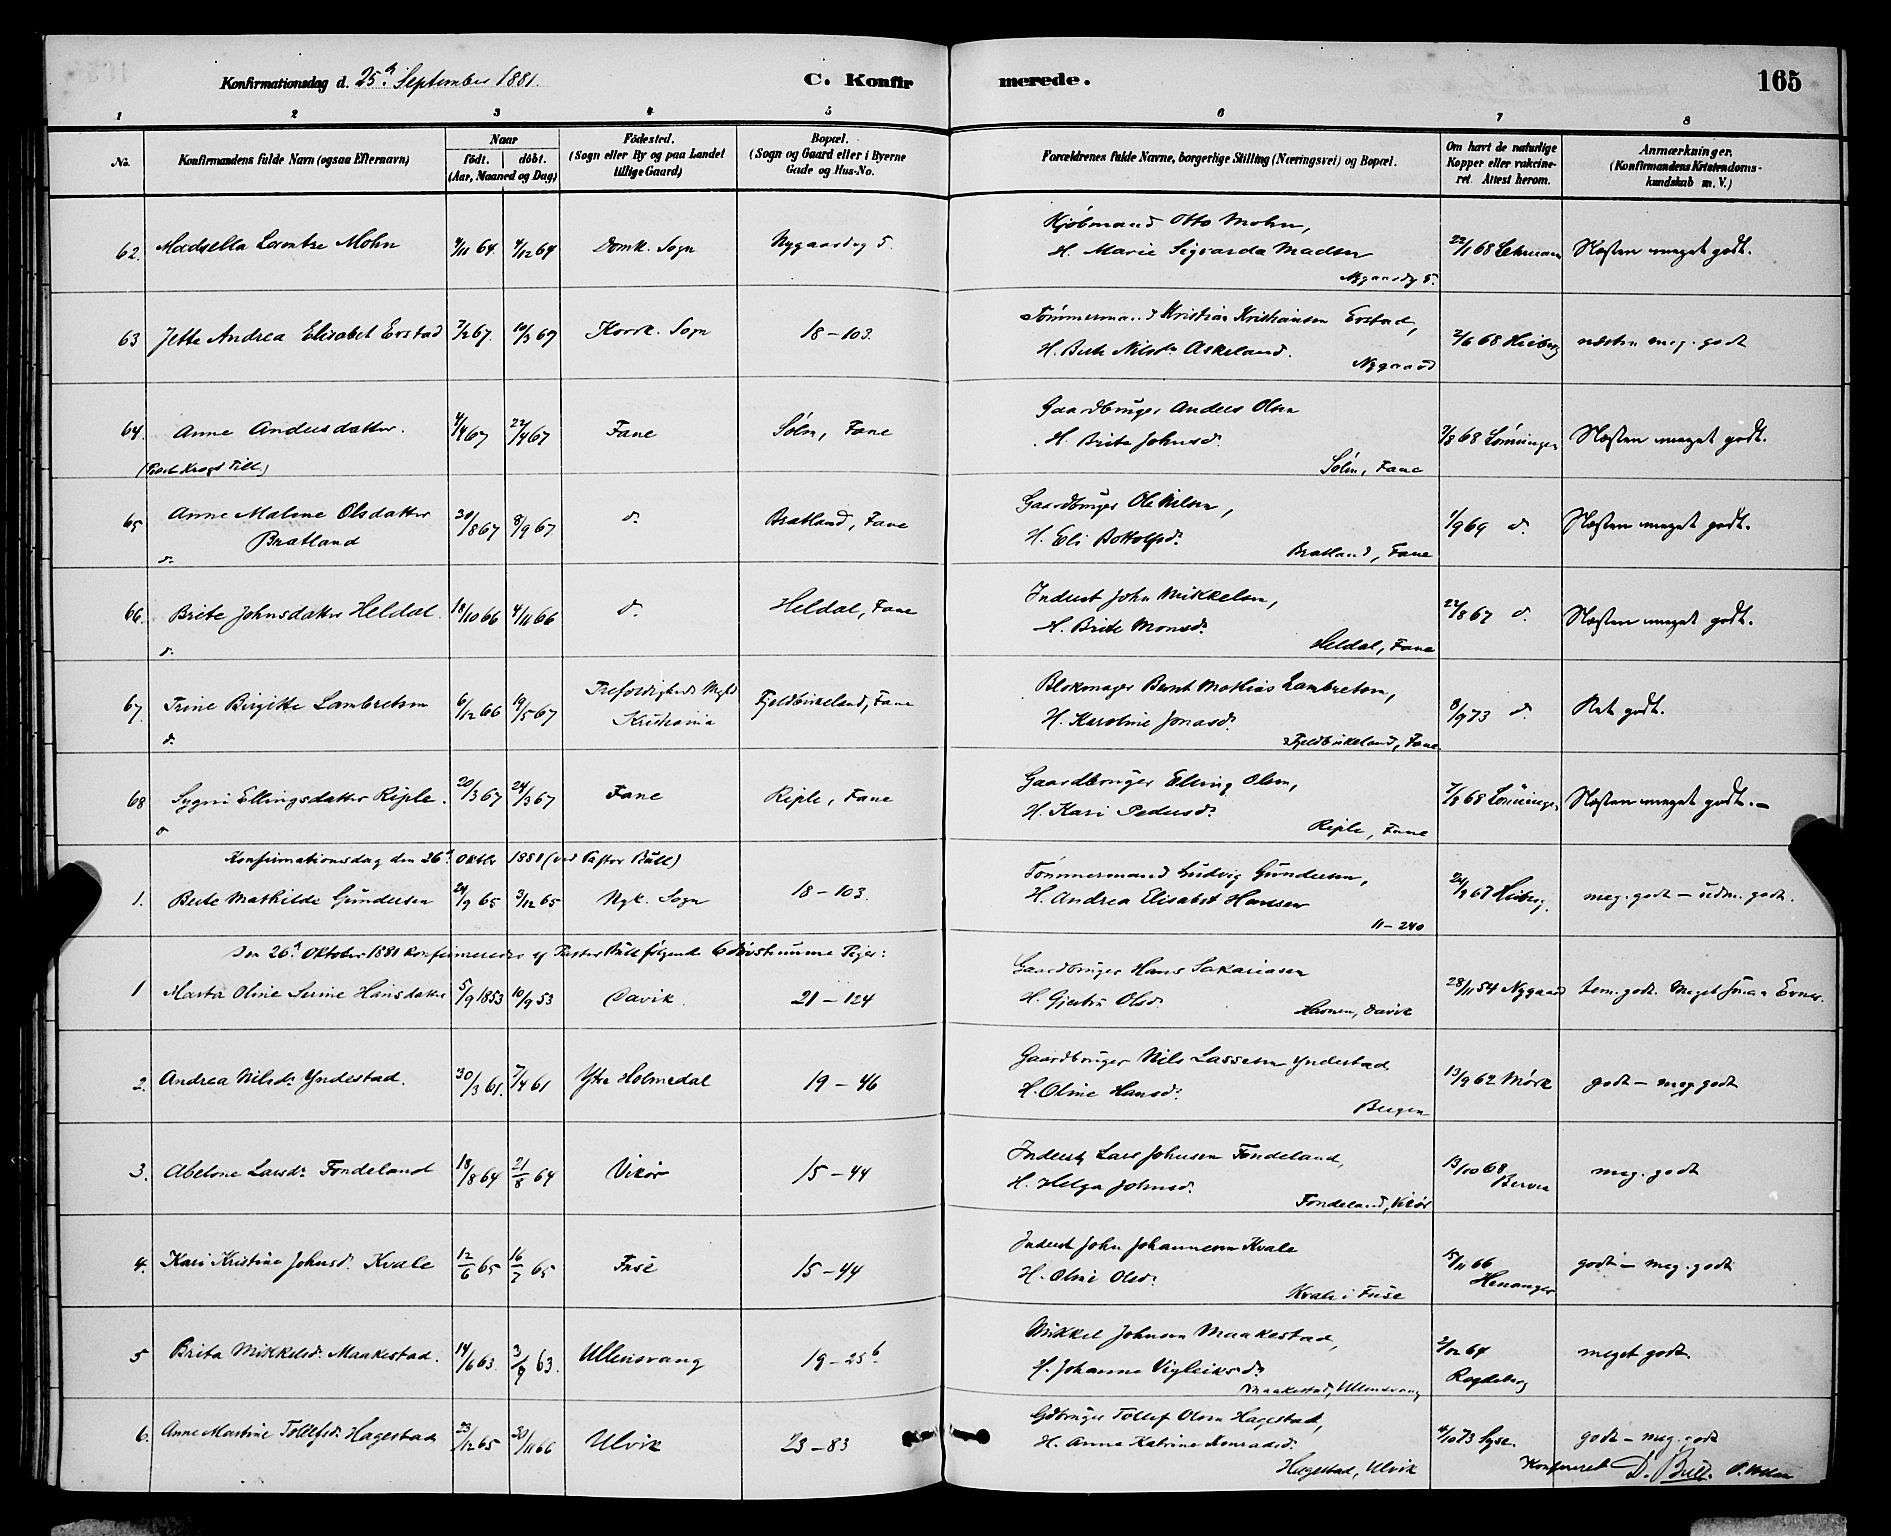 Konfirmationsdag d. 25de September 1881.
C. Konfirmerede.
165
1 2 3 4 5 6 7 8
No.
Konfirmandens fulde Navn (ogsaa Efternavn)
Naar
født. døbt.
(Aar, Maaned og Dag)
Fødested.
(Sogn eller By og paa Landet
tillige Gaard)
Bopæl.
(Sogn og Gaard eller i Byerne
Gade og Hus-No.
Forældrenes fulde Navne, borgerlige Stilling (Næringsvei) og Bopæl.
Om havt de naturlige
Kopper eller vakcine-
ret. Attest herom.
Anmærkninger.
(Konfirmandens Kristendoms-
kundskab m. V.)
62. Madsella Mohn 9/11 64. 4/12 64 Domk. Sogn Nygaardsg 5. Kjøbmand Otto Mohn, 22/1 68 Lehmann Næsten meget godt.
H. Marie Sigvarda Madsen
Nygaardsg 5.
63 Jette Andrea Elisabet Evstad 7/2 67. 10/3 67 Korsk. Sogn 18–103. Tømmermand Kristian Kristiansen Evstad, 2/6 68 Heiberg næsten meg. godt
H. Berte Nilsdr Askeland.
Nygaard
64. Anne Andersdatter. 4/4 67 22/4 67 Fane Søln, Fane Gaardbruger Anders Olsen 7/8 68 Lønningen Næsten meget godt.
H. Brita Johnsd.
Søln, Fane
65 Anne Maline Olsdatter 30/8 67 8/9 67 do. Bratland, Fane Gaardbruger Ole Nilsen, 1/9 69 do. Næsten meget godt.
Bratland
do.
H. Eli Bottolfsdr.
Bratland, Fane
66. Brite Johnsdatter Heldal. 18/10 66 4/11 66 do. Heldal, Fane Inderst John Mikkelsen, 22/8 67 do. Næsten meget godt.
do.
H. Brite Monsdr.
Heldal, Fane
67. Trine Birgitte Lambretsen 6/12 66 19/5 67 Trefoldigheds Mgh Kristiania Fjeldbirkeland, Fane Blokmager Bernt Mathias Lambretsen, 8/9 73 do. Ret godt.
do.
H. Karoline Jonasdr.
Fjeldbirkeland, Fane
68 Sygni Ellingsdatter Riple. 20/3 67 24/3 67 Fane Riple, Fane Gaardbruger Elling Olsen, 7/8 68 Lønningen Næsten meget godt.—
do
H. Kari Pedersdr.
Riple, Fane
Konfirmationsdag den 26de Oktbr 1881 (ved Pastor Bull)
1. Berte Mathilde Gundersen 24/9 65 3/12 65 Nyk. Sogn 18–103. Tømmermand Ludvig Gundersen, 24/9 67 Heiberg. meg. godt – udm. godt.
H. Andrea Elisabet Hansen
11–240
Den 26de Oktober 1881 konfirmeredes af Pastor Bull følgende 6 døvstumme Piger:
1 Marta Oline Serine Hansdatter 5/9 1853 10/9 53 Davik. 21–124 Gaardbruger Hans Sakariasen 28/11 54 Nygaard tem. godt. Meget smaa Evner.
H. Gjertru Olsd.
Davik
2. Andrea Nilsdr. Yndestad. 30/3 61. 7/4 61 Ytre Holmedal 19–46 Gaardbruger Nils Lassesen Yndestad 13/9 62 Mørk godt – meg godt
H. Oline Hansd.
Bergen
3. Abelone Larsdr. Tøndeland 18/8 64 21/8 64 Vikør 15–44 Inderst Lars Johnsen Tøndeland, 13/10 68 meg. godt
H. Helga Johnsd.
Tøndeland, Vikør
4. Kari Kristine Johnsd. Kvale 12/6 65 16/7 65 Fuse 15–44 Inderst John Johannesen Kvale 15/11 66 Henanger godt – meg. godt
H. Oline Olsd.
Kvale i Fuse
5 Brita Mikkelsd. Maakestad. 14/6 63. 3/9 63. Ullensvang 19–25b Mikkel Johnsen Maakestad, 2/12 64 meget godt.
H. Johanna Vigleiksdr.
Maakestad, Ullensvang
6. Anne Martine Tollefsd. Hagestad 23/12 65 30/11 66 Ulvik 23–83 Gdbruger Tollef Olsen Hagestad, 4/10 73 Syse. godt – meg. godt
H. Anna Katrine Konradsd.
Hagestad, Ulvik
Konfereret D. Bull.